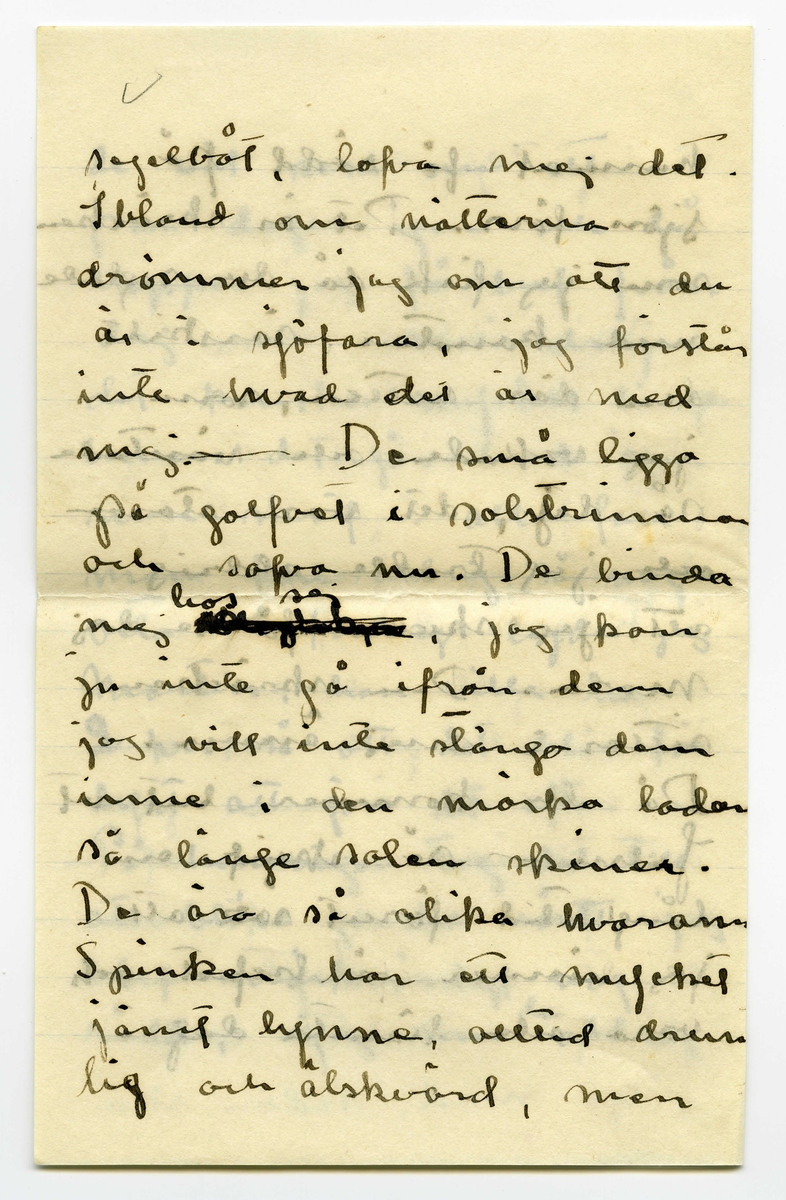 segelbåt, lofva mej det.
Ibland om nätterna
drömmer jag om att du
är i sjöfara, jag förstår
inte hvad det är med
mej. — De små ligga
på golfvet i solstrimman
och sofva nu. De binda
hos sej
mej , jag kan
ju inte gå ifrån dem
jag vill inte stänga dem
inne i den mörka ladan
så länge solen skiner.
De äro så olika hvarann
Spinken har ett mycket
jämt lynne, alltid
lig och älskvärd, men